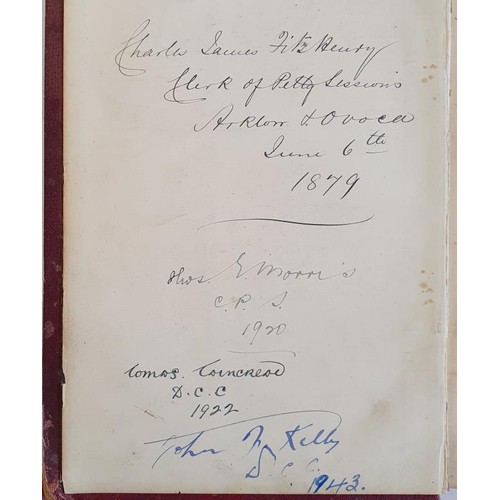 Charles James Fitz Henry
Clerk of Petty Sessions
Arklow & Ovoca
June 6th
1879
Thos. E. Morris
C. P. S.
1920
Tomás
D.C.C
1922
John Kelly
D.C.C.
1943.